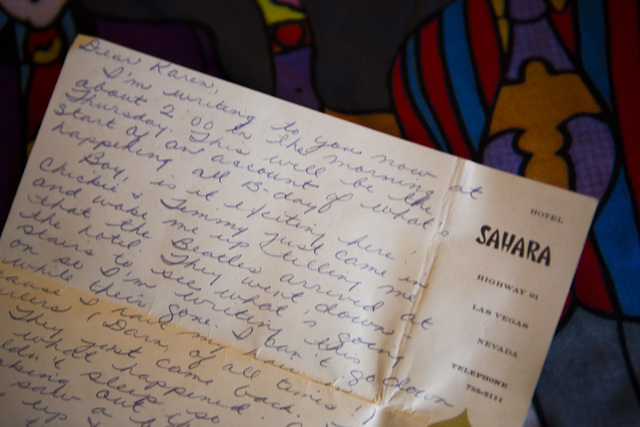 Dear Karen,
I'm writing to you now at
about 2:00 in the morning
Thursday. This will be the
start of an account of what's
happening all B-day!
Boy, is it exciting here!
Chickie & Tammy just came in
and woke me up telling me
that the Beatles arrived at
the hotel. They went down-
stairs to see what's going
on so I'm writing this
while their gone. I can't go down
cause I have my hair in
(Darn of all times!)
They just came back.
what happened.
dn't sleep so
saw out the
up a
HOTEL
SAHARA
HIGHWAY 91
LAS VEGAS
NEVADA
TELEPHONE
735-2111